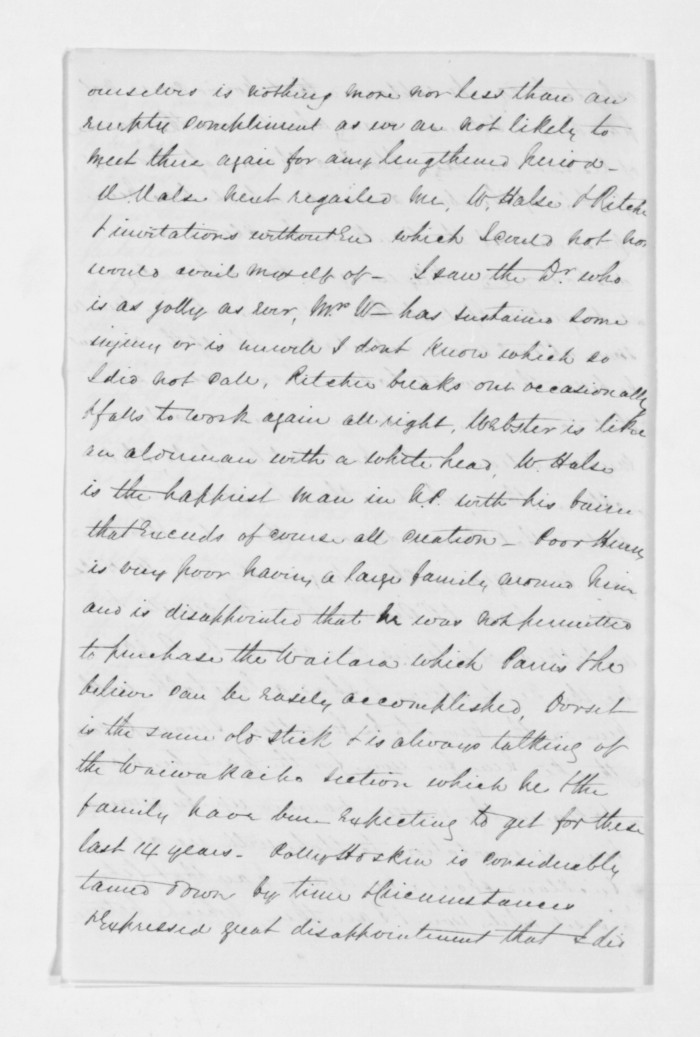 ourselves is nothing more nor less than an
empty compliment as we are not likely to
meet there again for any lengthened period -
Halse next regailed me, W. Halse & Ritchie
& invitations without End which I could not nor
would avail myself of - I saw the Dr. who
is as jolly as ever, Mrs W - has sustained some
injury or is unwell I dont know which so
I did not call, Ritchie breaks out occasionally
& falls to work again all right, Webster is like
an alderman with a white head, W. Halse
is the happiest man in N.P. with his bairn
that Exceeds of course all creation - Poor
is very poor having a large family around him
and is disappointed that he was not permitted
to purchase the Waitara which Parris & he
believe can be Easily accomplished, Dorset
is the same old stick & is always talking of
the Waiwakaiho section which he & the
family have been Expecting to get for these
last 14 years - Dolly Hoskin is considerably
tamed down by time & circumstances
& Expressed great disappointment that I did